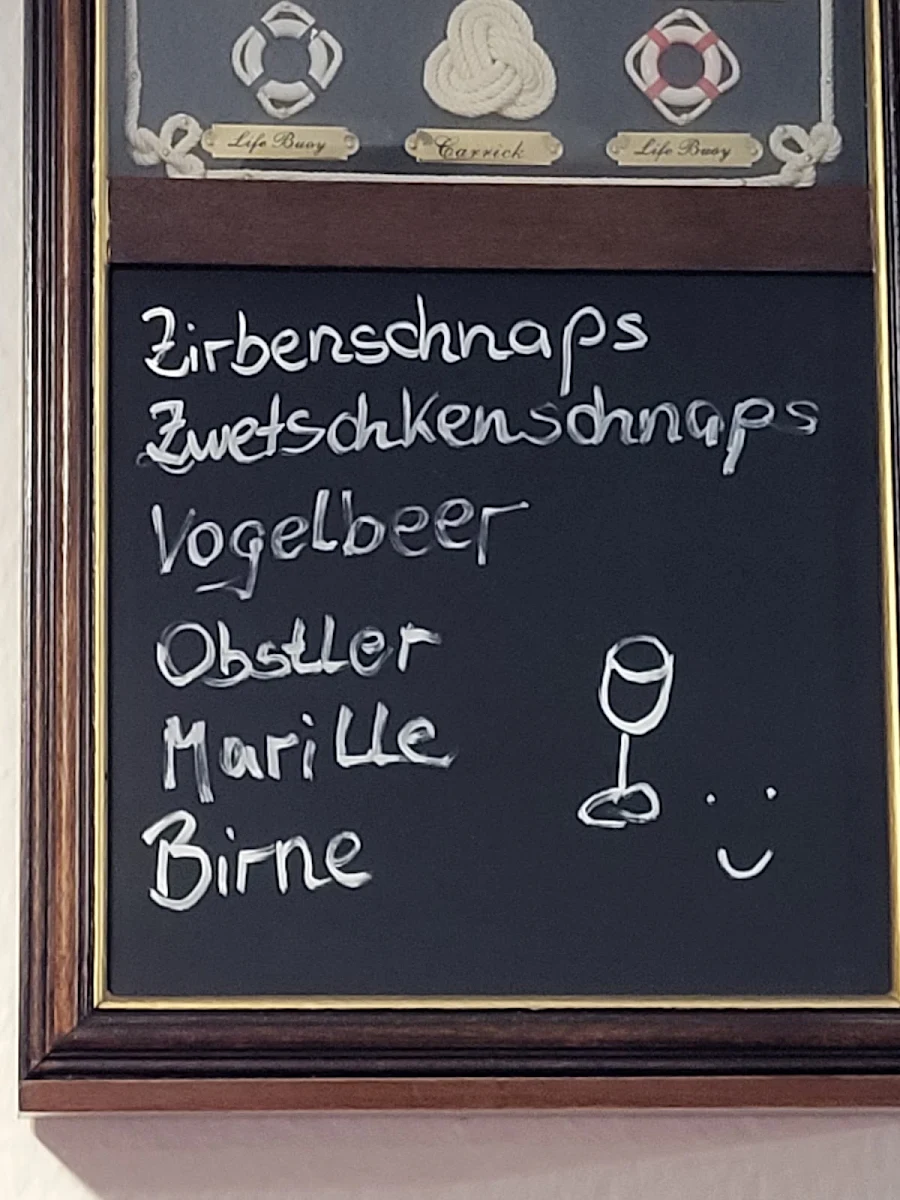 Life Buoy Carrick Life Buoy
Zirbenschnaps
Zwetschkenschnaps
Vogelbeer
Obstler
Marille
Birne